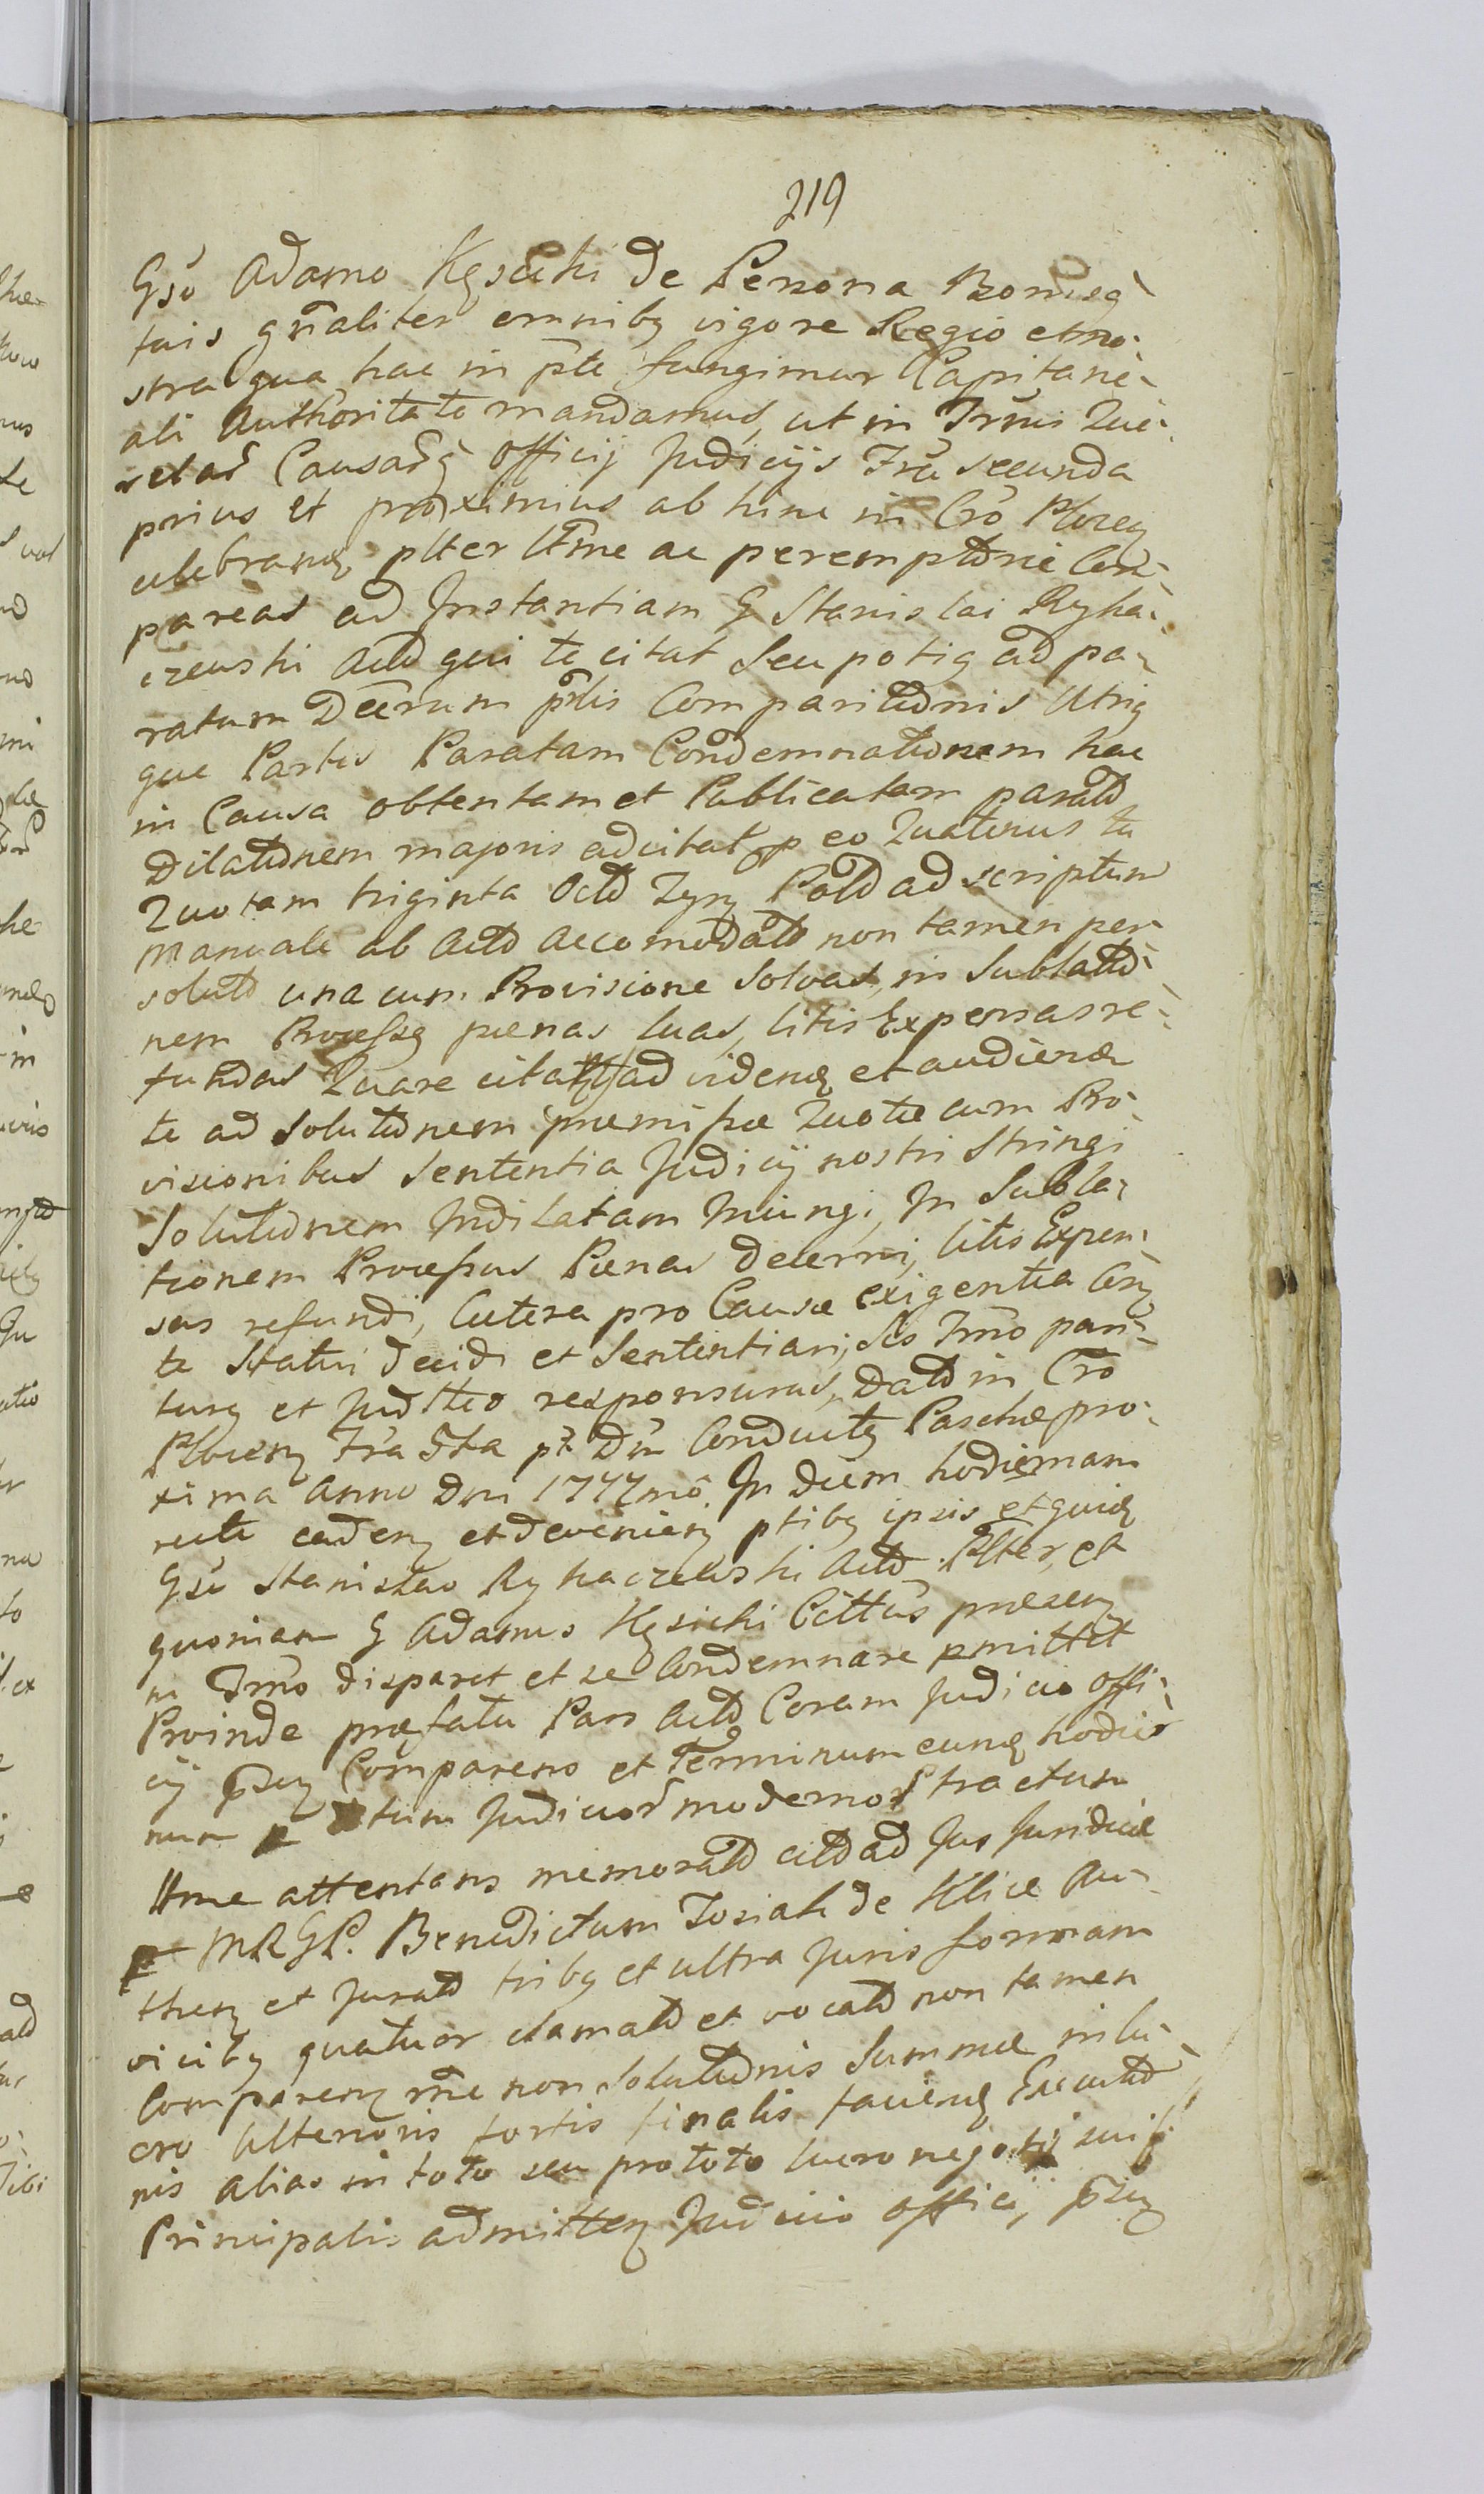 219
Gso Adamo Kęsicki de Persona Bonisq̀
tuis gnaliter omnibq vigore Regio et no-
stra qua hac in pte fungimur Capitane-
ali Authoritate mandamus, ut in Trmis Que-
relar Causarq Officij Judicijs Fria secunda
prius et proximius ab hinc in Cro Plocen
celebranq plter ltime ac peremptorie Com-
pareas ad Instantiam G Stanislai Ryka-
czewski Acto qui te citat Seu potiq ad pa-
ratum Decrum plis Comparitionis Utriq
que Partis Paratam Condemnationem hac
in Causa obtentam et Publicatam parato
Dilationem majoris adcitat p eo Quatenus tu
Quotam triginta Octo Tynf Polo ad scriptum
Manuale ab Acto Accomodato non tamen per-
soluto una cum Provisione Solvas, in Sublatio-
nem Processq pænas luas, litis Expensas re-
fundas Quare citat ad videnq et audienq
te ad Solutionem præmissæ Quotæ cum Pro-
visionibus Sententia Judicij nostri Stringi
Solutionem Indilatam Iniungi, In Subla-
tionem Processus Pænas Decerni, litis Expen-
sas refundi, Cætera pro Causæ exigentia Cor
te Statui decidi et Sententiari, Sis Trmo pari-
turq et Judtteo responsurus, Dato in Cro
Plocen Fria 5ta pt Dm Conductq Paschæ pro-
xima Anno Dni 1747mo. In diem hodiernam
recte caden et devenien ptibq ipsis et quidq
Gso Stanislao Rykaczewski Acto Plter, et
quoniam G Adamus Kęsicki Cittus præsen
in Trmo disparet et se Condemnare pmittet
Proinde præfata Pars Acto Coram Judicio Offi-
cij psen Comparens et Terminum eunq hodier
num p tum Judicior modernor tractum
ltme attentans memorato cito ad Jus Juridice
p MRGP. Benedictum Tosiak de Klice Au-
then et Jurato tribq et ultra Juris formam
vicibq quatuor clamato et vocato non tamen
Comparen rne non Solutionis Summæ in lu-
cro Ulterioris fortis finalis facienq Executio
nis alias in toto seu pro toto lucro negotij sui
Principalis admitten Judicio Officij psen